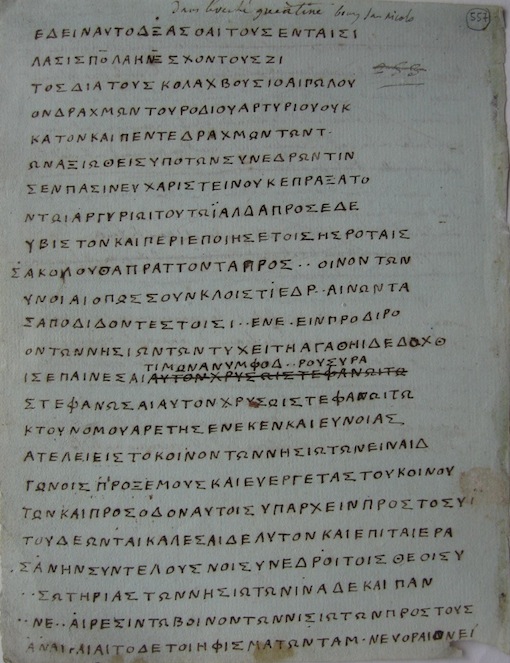 557
ΕΔΕΙΝΑΥΤΟΔΞΑΣΟΑΙΤΟΥΣΕΝΤΑΙΣΙ
ΛΑΣΙΣΠΟΛΑΗΝΕΣΧΟΝΤΟΥΣΖΙ
ΤΟΣΔΙΑΤΟΥΣΚΟΛΑΧΒΟΥΣΙΟΑΙΠΩΛΟΥ
ΟΝΔΡΑΧΜΩΝΤΟΥΡΟΔΙΟΥΑΡΤΥΡΙΟΥΟΥΚ
ΚΑΤΟΝΚΑΙΠΕΝΤΕΔΡΑΧΜΩΝΤΩΝΤ.
ΩΝΑΞΙΩΘΕΙΣΥΠΟΤΩΝΣΥΝΕΔΡΩΝΤΙΝ
ΣΕΝΠΑΣΙΝΕΥΧΑΡΙΣΤΕΙΝΟΥΚΕΠΡΑΞΑΤΟ
ΝΤΩΙΑΡΓΥΡΙΩΙΤΟΥΤΩΙΑΛΔΑΠΡΟΣΕΔΕ
ΥΒΙΣΤΟΝΚΑΙΠΕΡΙΕΠΟΙΗΣΕΤΟΙΣΗΣΡΟΤΑΙΣ
ΣΑΚΟΛΟΥΘΑΠΡΑΤΤΟΝΤΑΠΡΟΣ..ΟΙΝΟΝΤΩΝ
ΥΝΟΙΑΙΟΠΩΣΣΟΥΝΚΛΟΙΣΤΙΕΔΡ..ΑΙΝΩΝΤΑ
ΣΑΠΟΔΙΔΟΝΤΕΣΤΟΙΣΙ..ΕΝΕ.ΕΙΝΠΡΟΔΙΡΟ
ΟΝΤΩΝΝΗΣΙΩΝΤΩΝΤΥΧΕΙΤΗΑΓΑΘΗΙΔΕΔΟΧΘ
ΤΙΜΩΝΑΝΥΜΦΟΔ..ΡΟΥΣΥΡΑ
ΙΣΕΠΑΙΝΕΣΑΙΑΥΤΟΝΧΡΥΣΩΙΣΤΕΦΑΝΩΙΤΩ
ΣΤΕΦΑΝΩΣΑΙΑΥΤΟΝΧΡΥΣΩΙΣΤΕΦΑΝΩΙΤΩ
ΚΤΟΥΝΟΜΟΥΑΡΕΤΗΣΕΝΕΚΕΝΚΑΙΕΥΝΟΙΑΣ
ΑΤΕΛΕΙΕΙΣΤΟΚΟΙΝΟΝΤΩΝΝΗΣΙΩΤΩΝΕΙΝΑΙΔ
ΓΩΝΟΙΣΠΡΟΞΕΜΟΥΣΚΑΙΕΥΕΡΓΕΤΑΣΤΟΥΚΟΙΝΟΥ
ΤΩΝΚΑΙΠΡΟΣΟΔΟΝΑΥΤΟΙΣΥΠΑΡΧΕΙΝΠΡΟΣΤΟΣΥΙ
ΤΟΥΔΕΩΝΤΑΙΚΑΛΕΣΑΙΔΕΛΥΤΟΝΚΑΙΕΠΙΤΑΙΕΡΑ
.ΣΑΝΗΝΣΥΝΤΕΛΟΥΣΝΟΙΣΥΝΕΔΡΟΙΤΟΙΣΘΕΟΙΣΥ
..ΣΩΤΗΡΙΑΣΤΩΝΝΗΣΙΩΤΩΝΙΝΑΔΕΚΑΙΠΑΝ
..ΝΕ..ΑΙΡΕΣΙΝΤΩΒΟΙΝΟΝΤΩΝΝΙΣΙΩΤΩΝΠΡΟΣΤΟΥΣ
ΤΟΔΕΤΟΙΗΦΙΣΜΑΤΩΝΤΑΜ.ΝΕΥΟΡΑΙΟΝΕΙ